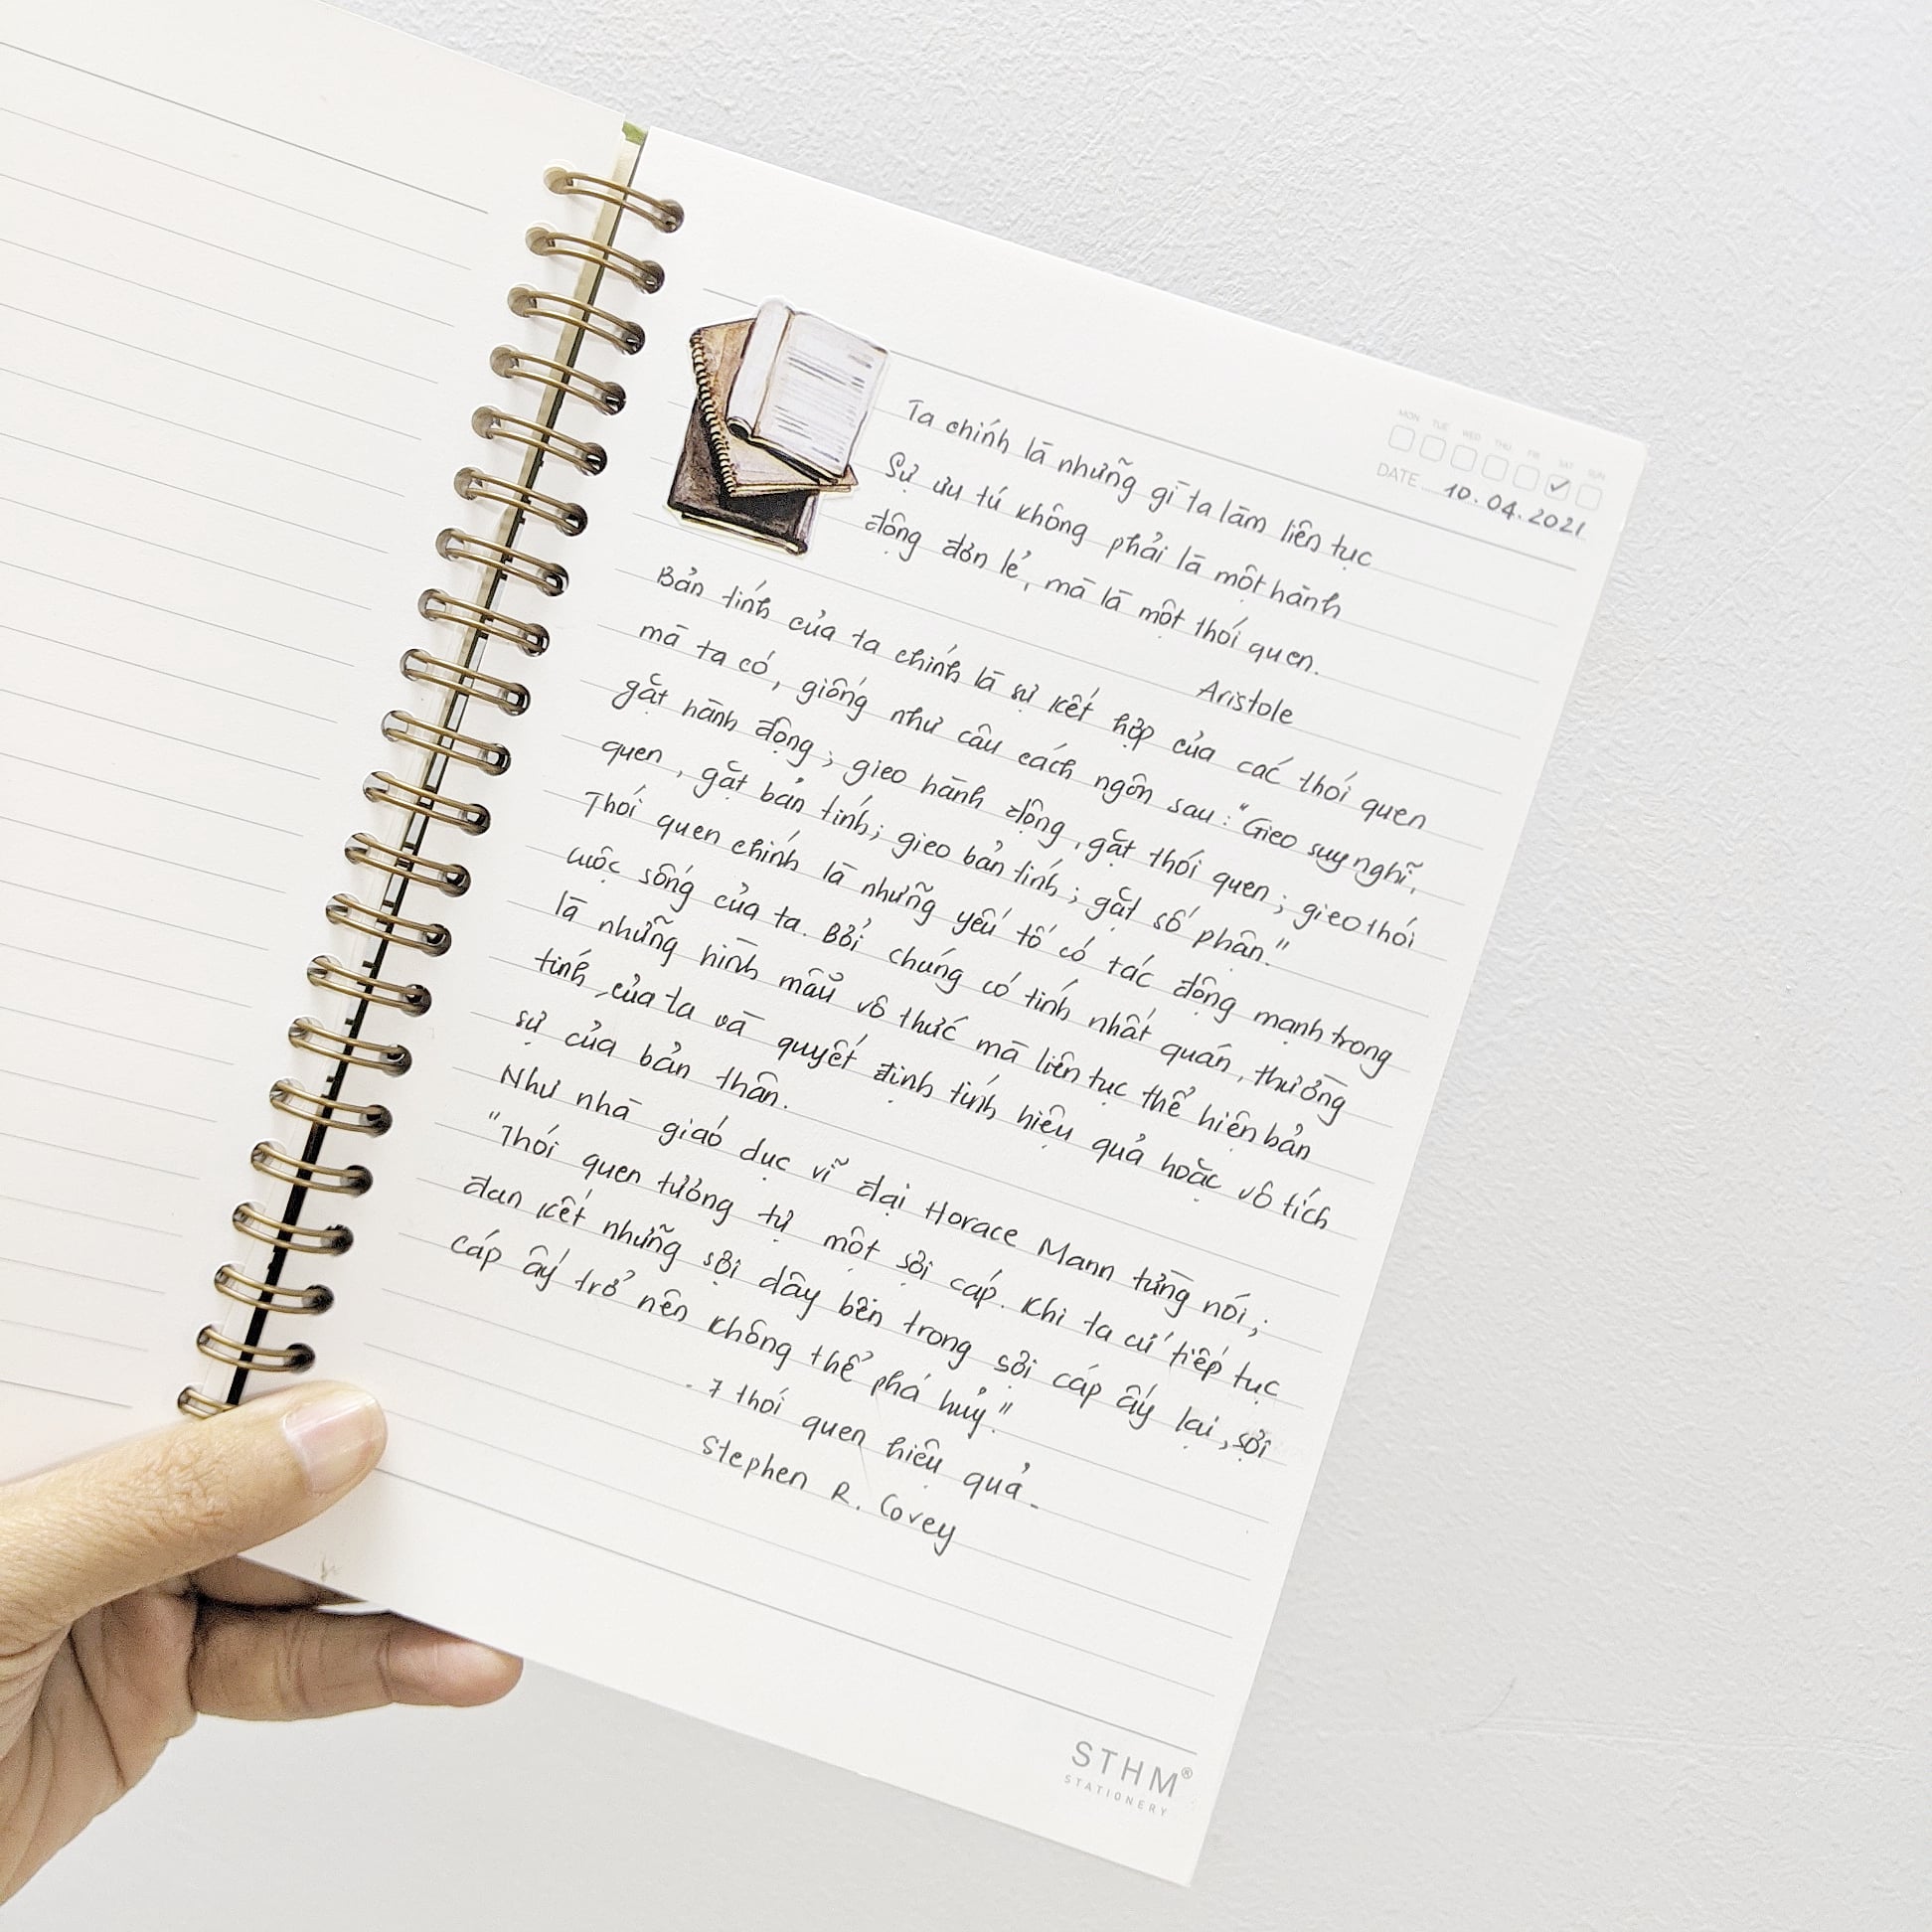 MON TUE WED THU FRI SAT SUN
DATE 10.04.2021
Ta chính là những gì ta làm liên tục
Sự ưu tú không phải là một hành
động đơn lẻ, mà là một thói quen.
Aristole
Bản tính của ta chính là sự kết hợp của các thói quen
mà ta có, giống như câu cách ngôn sau: "Gieo suy nghĩ,
gặt hành động; gieo hành động, gặt thói quen; gieo thói
quen, gặt bản tính; gieo bản tính; gặt số phận."
Thói quen chính là những yếu tố có tác động mạnh trong
cuộc sống của ta. Bởi chúng có tính nhất quán, thường
là những hình mẫu vô thức mà liên tục thể hiện bản
tính của ta và quyết định tính hiệu quả hoặc vô tích
sự của bản thân.
Như nhà giáo dục vĩ đại Horace Mann từng nói;
"Thói quen tương tự một sợi cáp. Khi ta cứ tiếp tục
đan kết những sợi dây bên trong sợi cáp ấy lại, sợi
cáp ấy trở nên không thể phá hủy."
- 7 thói quen hiệu quả -
Stephen R. Covey
STHM®
STATIONERY